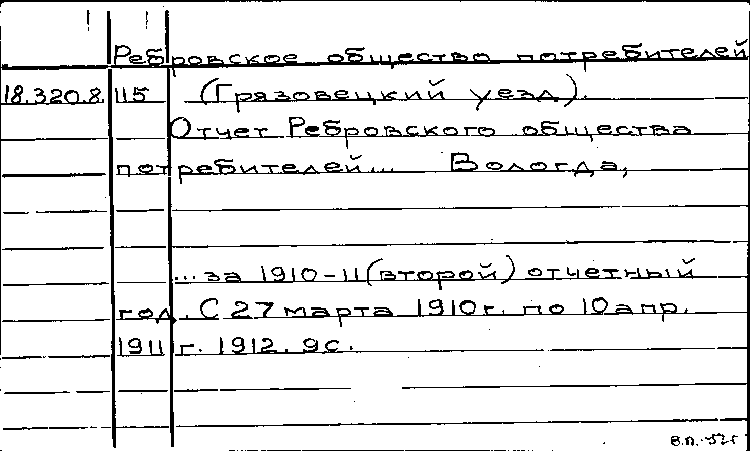 Ребровское общество потребителей
18.320.8. 115 (Грязовецкий уезд).
Отчет Ребровского общества
потребителей... Вологда,
...за 1910-11(второй) отчетный
год. С 27 марта 1910г. по 10 апр.
1911 г. 1912. 9с.
В.п.